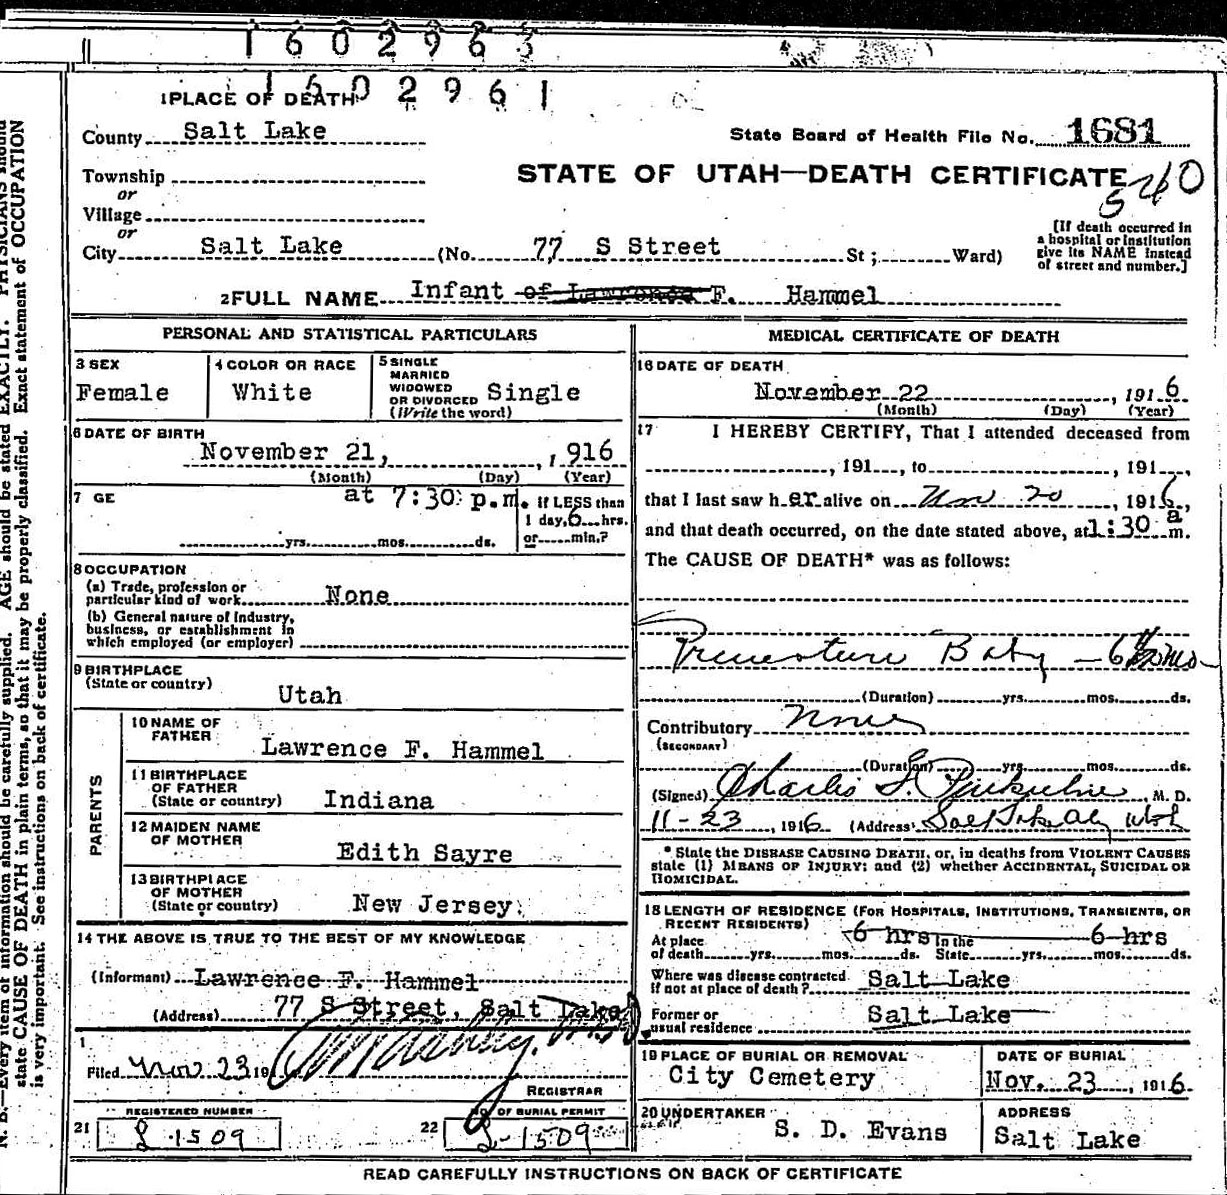 1602963
1602961
1 PLACE OF DEATH
County Salt Lake
State Board of Health File No. 1681
Township
or
Village
or
STATE OF UTAH—DEATH CERTIFICATE
[If death occurred in
a hospital or institution
give its NAME instead
of street and number.]
City Salt Lake (No. 77 S Street St; Ward)
2 FULL NAME Infant of Lawrence F. Hammel
PERSONAL AND STATISTICAL PARTICULARS
3 SEX
Female
4 COLOR OR RACE
White
5 SINGLE
MARRIED
WIDOWED
OR DIVORCED
(Write the word)
Single
6 DATE OF BIRTH
November 21, , 1916
(Month) (Day) (Year)
7 GE
at 7:30 p.m.
yrs. mos. ds.
if LESS than
1 day, 6 hrs.
or min.?
8 OCCUPATION
(a) Trade, profession or
particular kind of work None
(b) General nature of industry,
business, or establishment in
which employed (or employer)
9 BIRTHPLACE
(State or country)
Utah
PARENTS
10 NAME OF
FATHER
Lawrence F. Hammel
11 BIRTHPLACE
OF FATHER
(State or country) Indiana
12 MAIDEN NAME
OF MOTHER
Edith Sayre
13 BIRTHPLACE
OF MOTHER
(State or country) New Jersey
14 THE ABOVE IS TRUE TO THE BEST OF MY KNOWLEDGE
(Informant) Lawrence F. Hammel
(Address) 77 S Street, Salt Lake
1
Filed Nov 23 191
REGISTRAR
21 REGISTERED NUMBER
1509
22 NO. OF BURIAL PERMIT
1509
MEDICAL CERTIFICATE OF DEATH
16 DATE OF DEATH
November 22 , 1916
(Month) (Day) (Year)
17 I HEREBY CERTIFY, That I attended deceased from
, 191 , to , 191 ,
that I last saw her alive on Nov 20 , 1916,
and that death occurred, on the date stated above, at 1:30 a m.
The CAUSE OF DEATH* was as follows:
Premature Baby — 6 hours
(Duration) yrs. mos. ds.
Contributory None
(SECONDARY)
(Duration) yrs. mos. ds.
(Signed) Charles G. , M. D.
11-23 , 1916 (Address) Salt Lake City Utah
* State the DISEASE CAUSING DEATH, or, in deaths from VIOLENT CAUSES
state (1) MEANS OF INJURY; and (2) whether ACCIDENTAL, SUICIDAL OR
HOMICIDAL.
18 LENGTH OF RESIDENCE (FOR HOSPITALS, INSTITUTIONS, TRANSIENTS, OR
RECENT RESIDENTS)
At place 6 hrs In the 6 hrs
of death yrs. mos. ds. State yrs. mos. ds.
Where was disease contracted
if not at place of death? Salt Lake
Former or
usual residence Salt Lake
19 PLACE OF BURIAL OR REMOVAL
City Cemetery
DATE OF BURIAL
Nov. 23 , 1916
20 UNDERTAKER
S. D. Evans
ADDRESS
Salt Lake
READ CAREFULLY INSTRUCTIONS ON BACK OF CERTIFICATE
N. B.—Every item of information should be carefully supplied. AGE should be stated EXACTLY. PHYSICIANS should
state CAUSE OF DEATH in plain terms, so that it may be properly classified. Exact statement of OCCUPATION
is very important. See instructions on back of certificate.